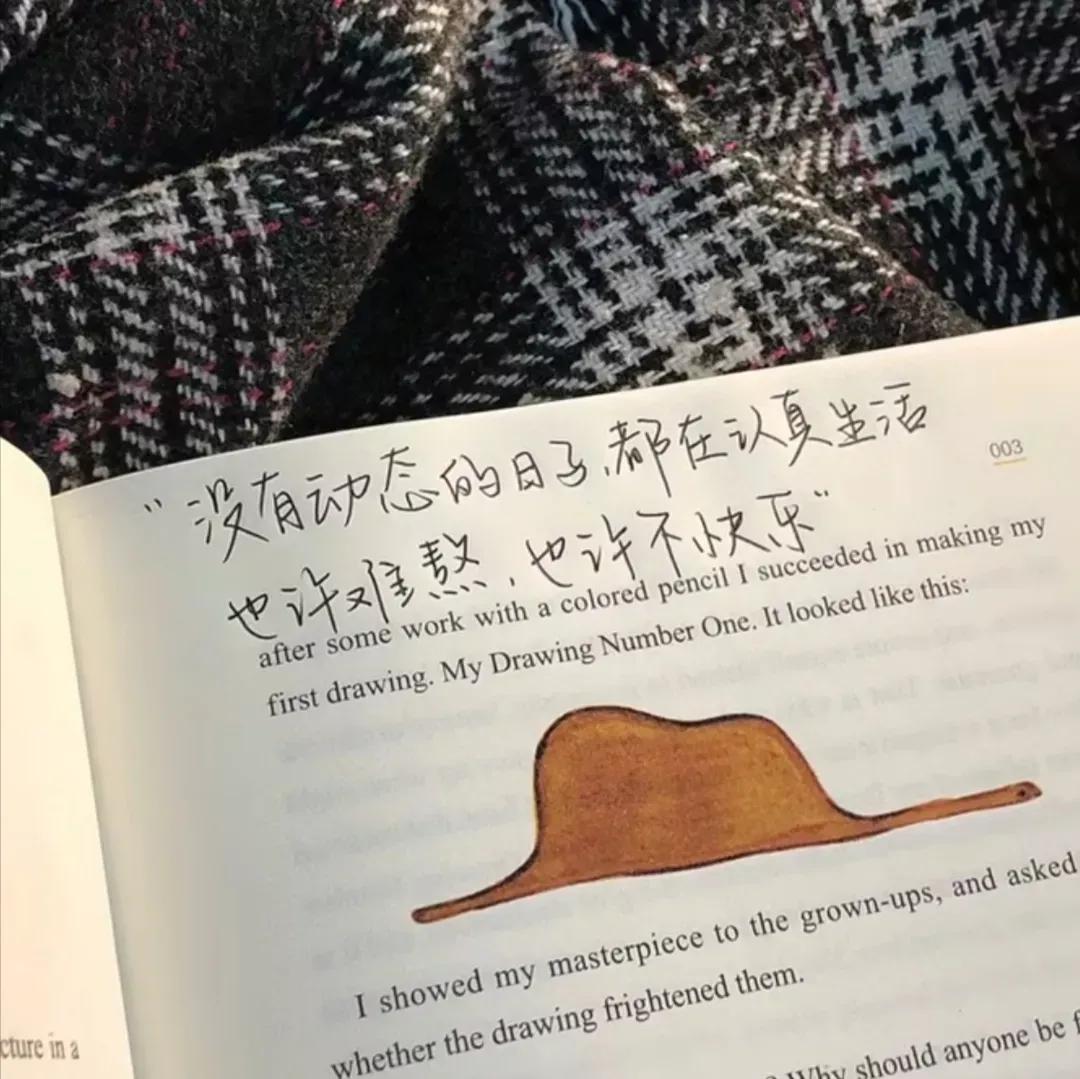 “没有动态的日子，都在认真生活
003
也许难熬，也许不快乐”
after some work with a colored pencil I succeeded in making my
first drawing. My Drawing Number One. It looked like this:
I showed my masterpiece to the grown-ups, and asked
whether the drawing frightened them.
Why should anyone be
cture in a